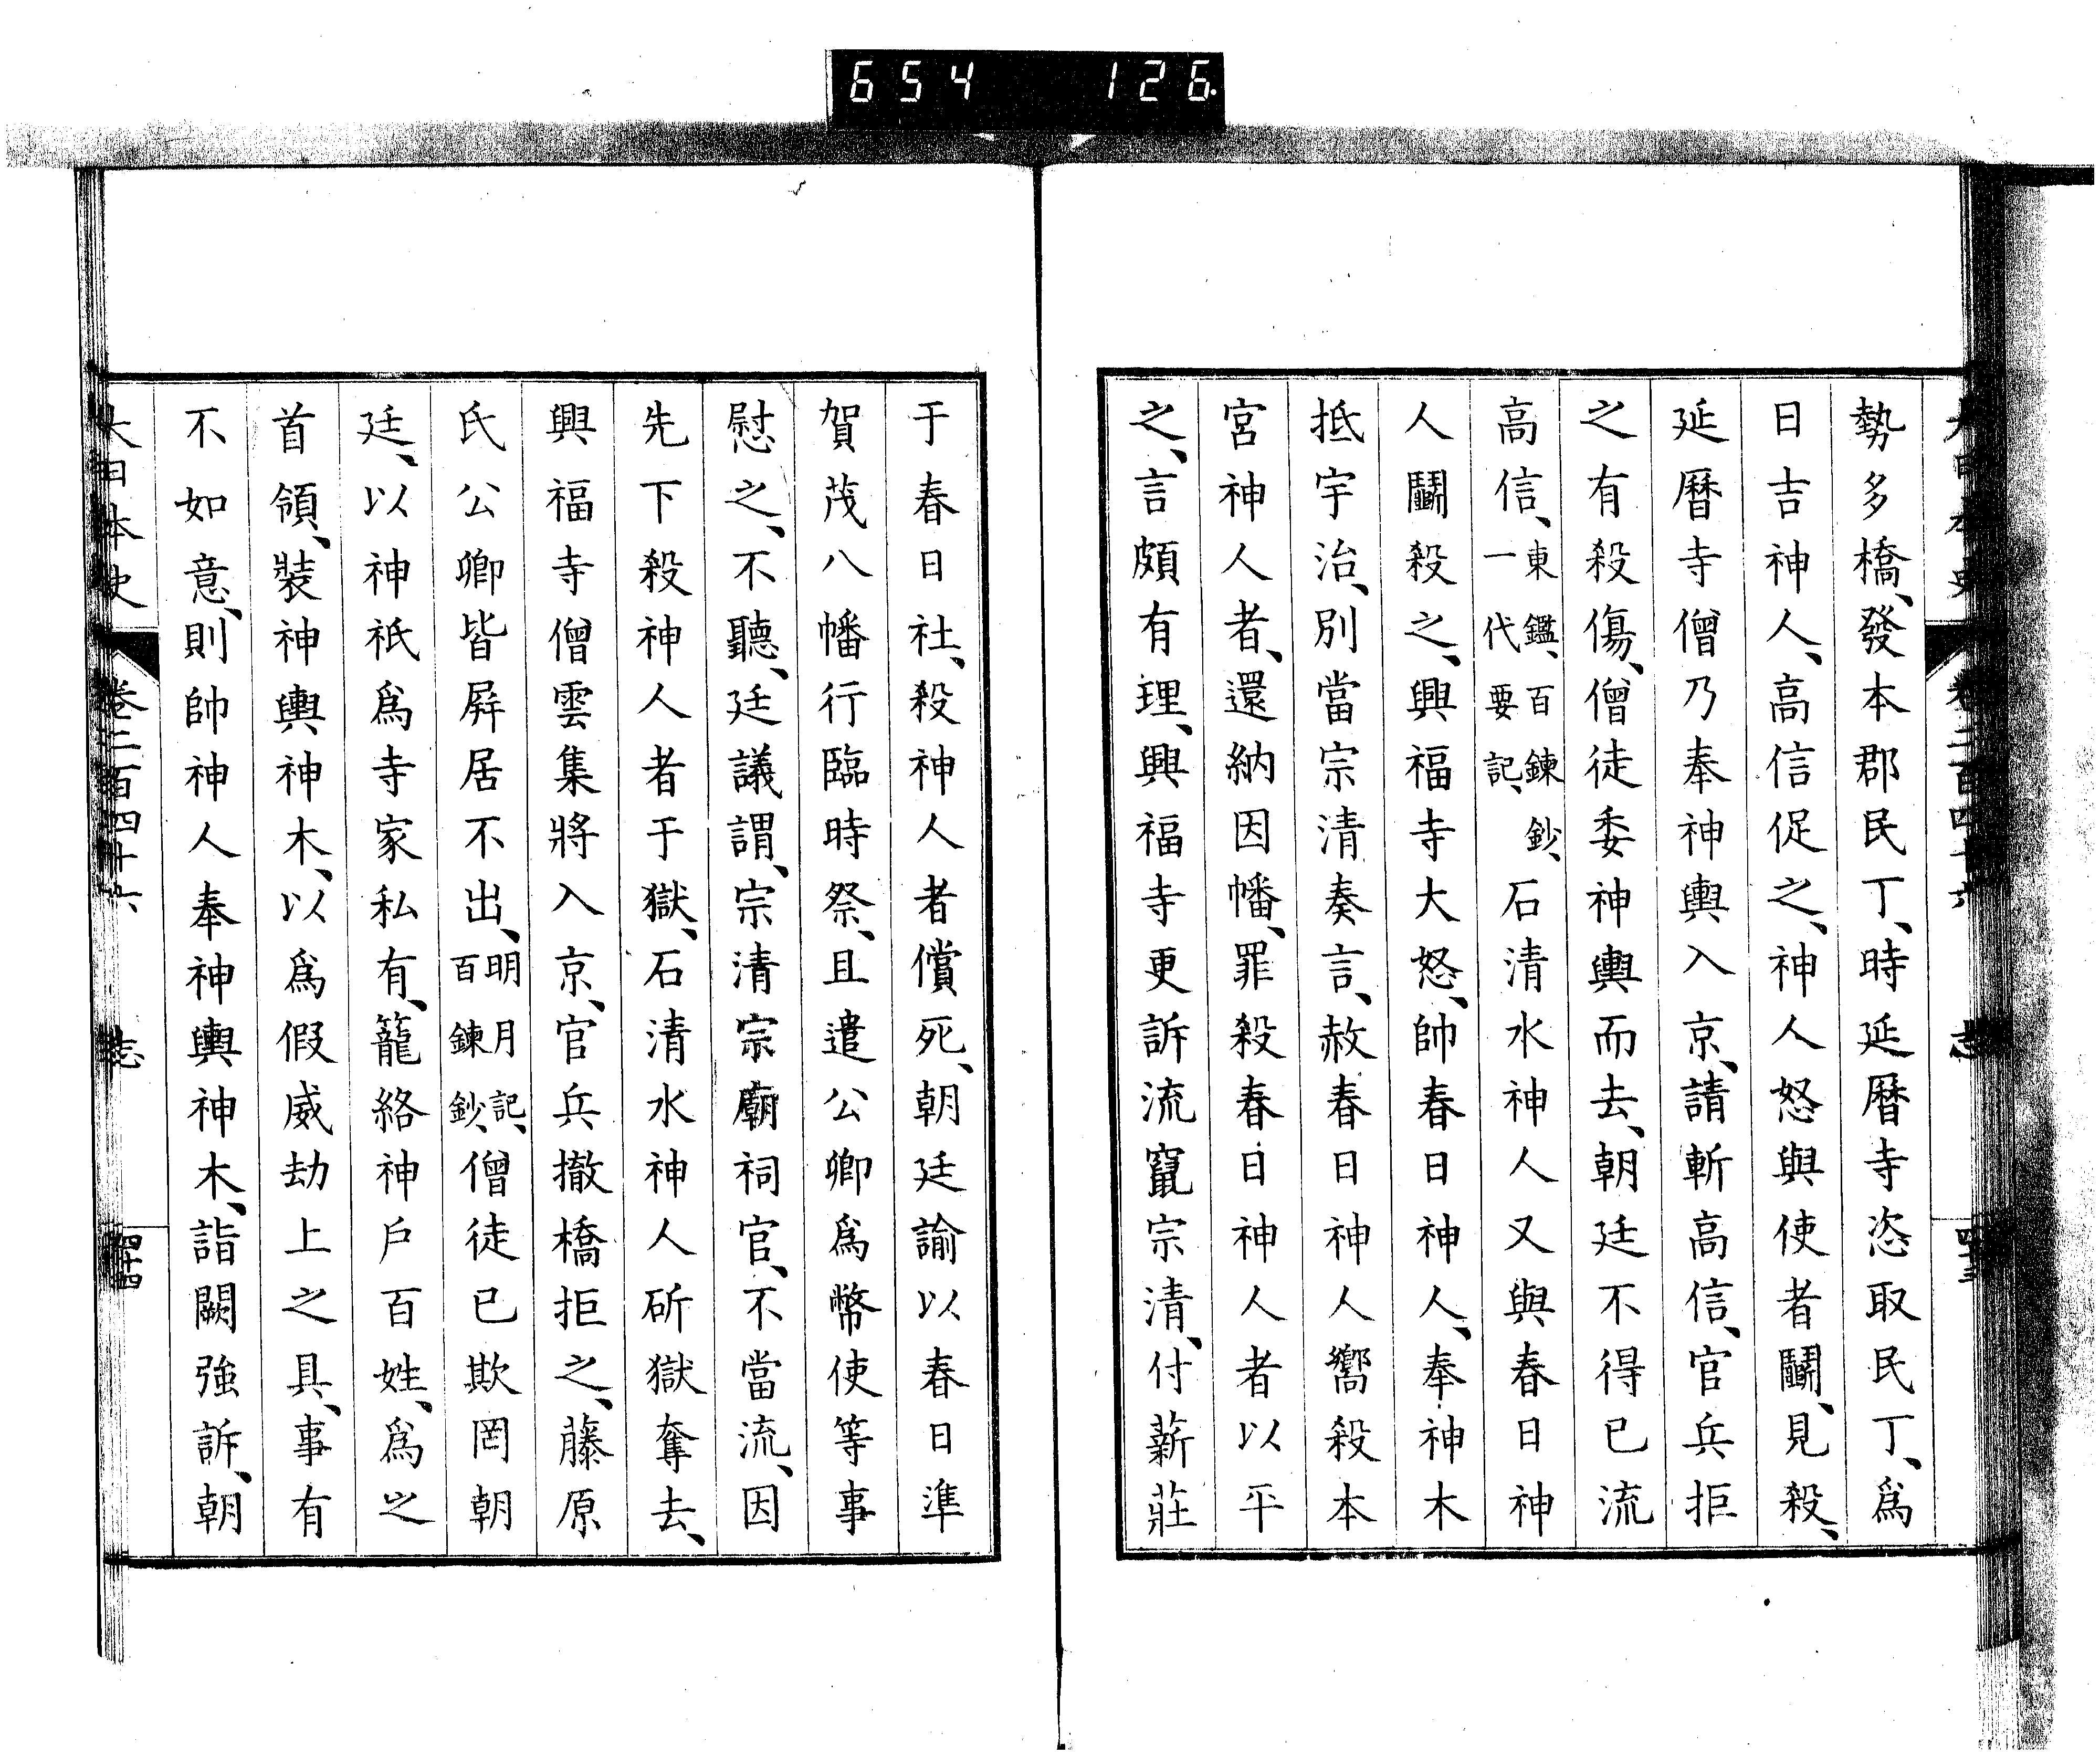 654 126
大日本史 卷二百四十六 志 四十三
勢多橋、發本郡民丁、時延曆寺恣取民丁、爲
日吉神人、高信促之、神人怒與使者鬭、見殺、
延曆寺僧乃奉神輿入京、請斬高信、官兵拒
之有殺傷、僧徒委神輿而去、朝廷不得已流
高信、東鑑、百鍊鈔、一代要記、石清水神人又與春日神
人鬭殺之、興福寺大怒、帥春日神人、奉神木
抵宇治、別當宗清奏言、赦春日神人嚮殺本
宮神人者、還納因幡、罪殺春日神人者以平
之、言頗有理、興福寺更訴流竄宗清、付薪莊
于春日社、殺神人者償死、朝廷諭以春日準
賀茂八幡行臨時祭、且遣公卿爲幣使等事
慰之、不聽、廷議謂、宗清宗廟祠官、不當流、因
先下殺神人者于獄、石清水神人斫獄奪去、
興福寺僧雲集將入京、官兵撤橋拒之、藤原
氏公卿皆屛居不出、明月記、百鍊鈔、僧徒已欺罔朝
廷、以神祇爲寺家私有、籠絡神戶百姓、爲之
首領、裝神輿神木、以爲假威劫上之具、事有
不如意、則帥神人奉神輿神木、詣闕強訴、朝
大日本史 卷二百四十六 志 四十四